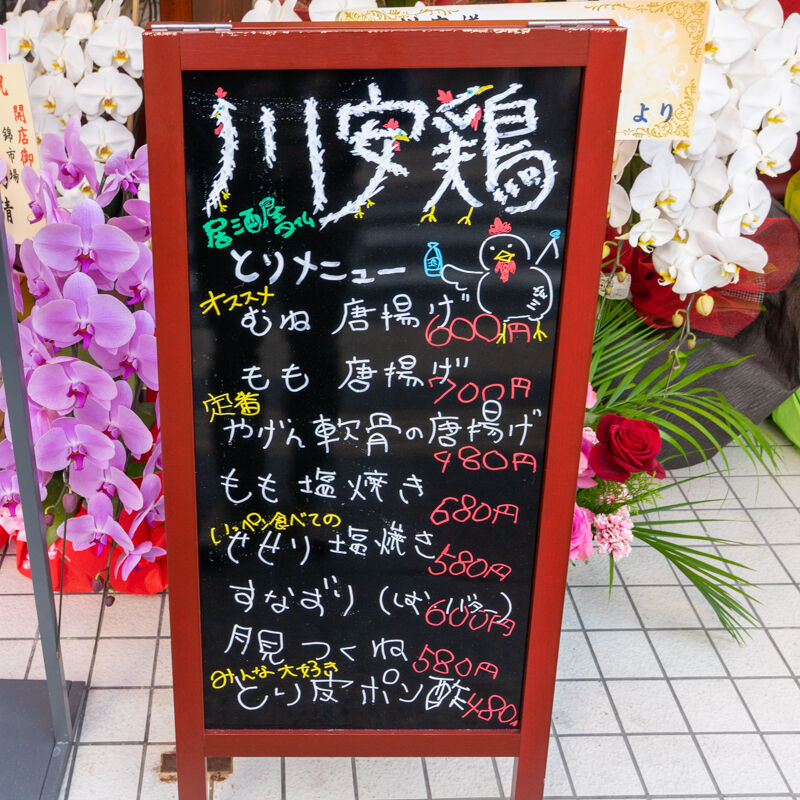 川安鶏
居酒屋タイム
とりメニュー
オススメ
むね 唐揚げ
600円
もも 唐揚げ
700円
定番
やげん軟骨の唐揚げ
480円
もも 塩焼き
680円
いっペン食べての
せせり 塩焼き
580円
すなずり (しお、バター)
600円
月見 つくね
580円
みんな大好き
とり皮ポン酢
480円
酒
川安
祝
開店御
錦市場
清
より